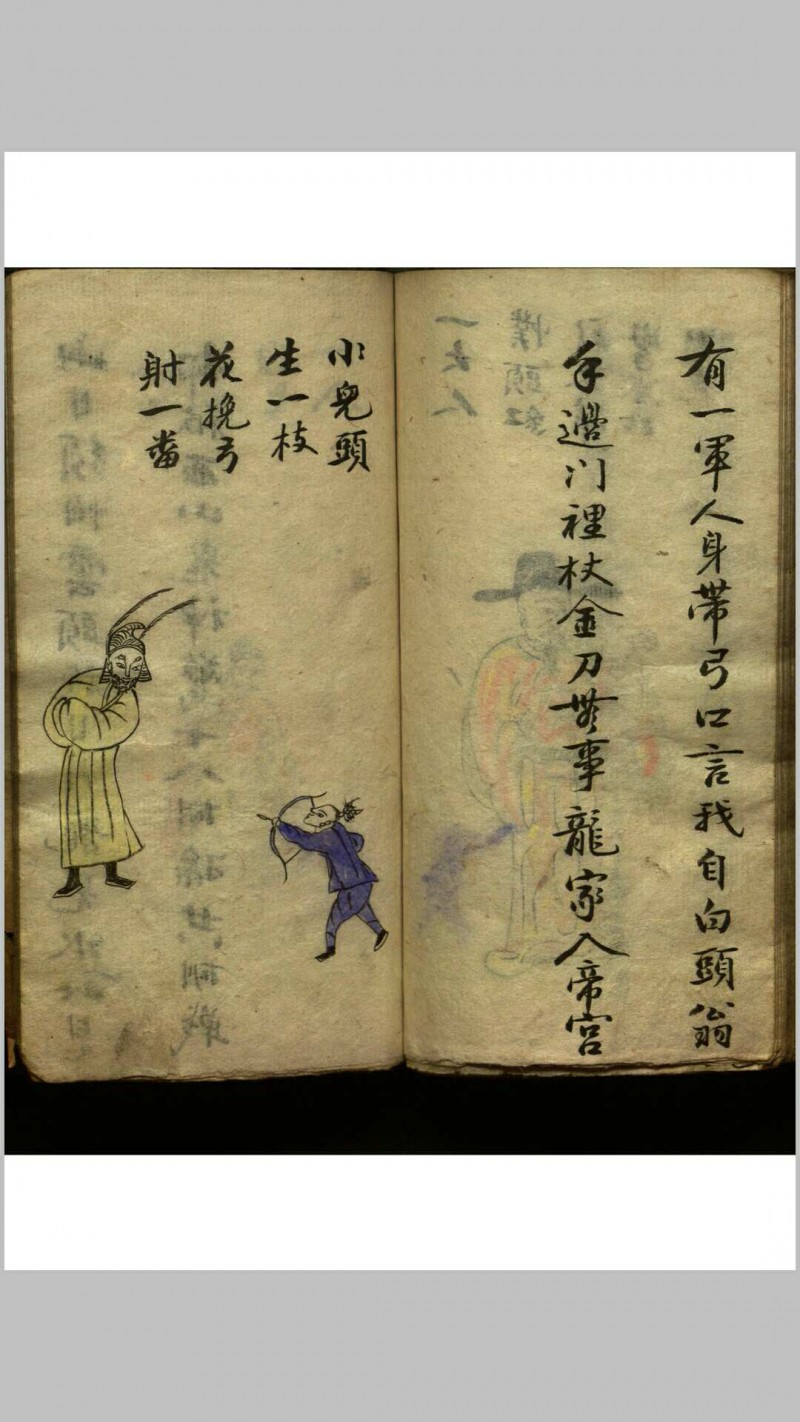 有一軍人身帶弓口言我自白頭翁
手邊门裡杖金刀無事龍家入帝宮
小兒頭
生一枝
花挽弓
射一番